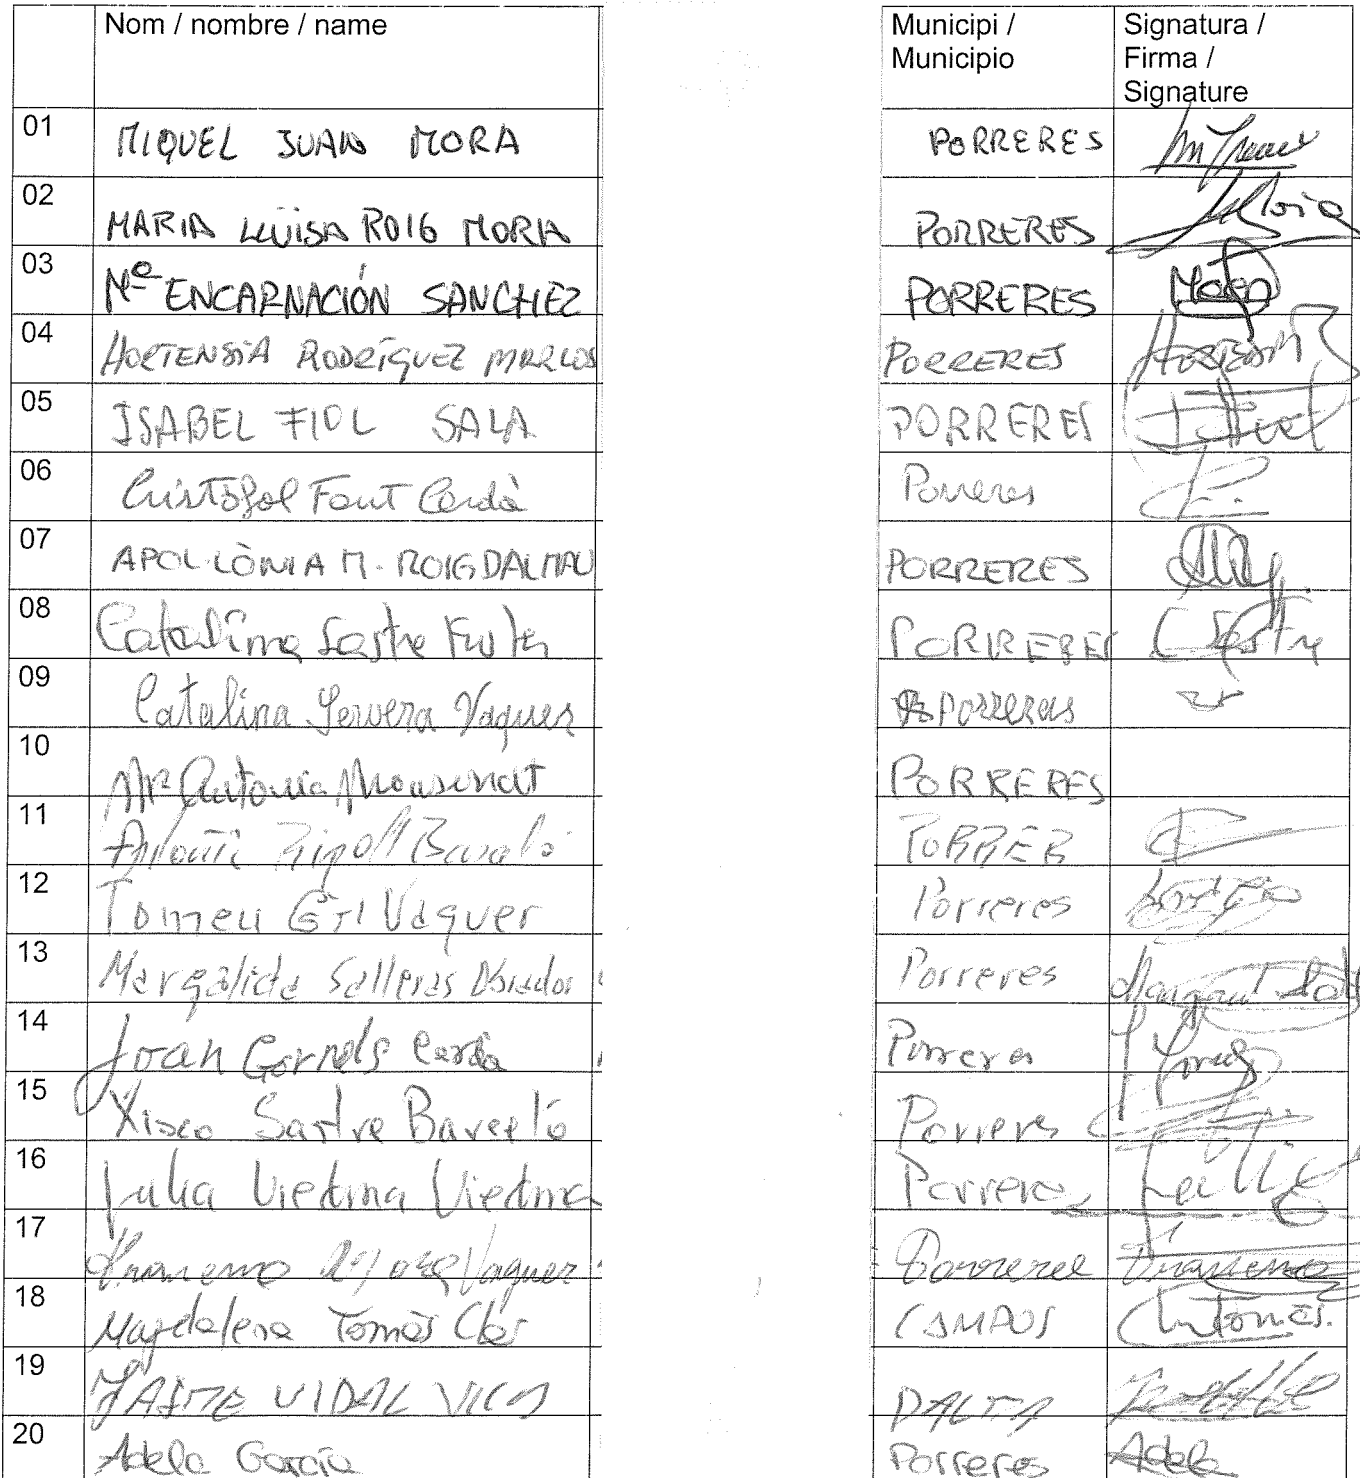 Nom / nombre / name Municipi / Signatura /
Municipio Firma /
Signature
01 MIQUEL JUAN MORA PORRERES
02 MARIA LLUÏSA ROIG MORA PORRERES
03 Mª ENCARNACIÓN SANCHEZ PORRERES
04 HORTENSIA RODRÍGUEZ MARCOS PORRERES
05 ISABEL FIOL SALA PORRERES
06 Cristòfol Font Cerdà Porreres
07 APOL·LÒNIA M. ROIG DALMAU PORRERES
08 Catalina Sastre PORRERES C Sastre
09 Catalina Servera Vaquer Porreras
10 Mª Antonia Monserrat PORRERES
11 Antoni Ripoll PORRER
12 Tomeu Gil Vaquer Porreres
13 Margalida Salleras Porreres
14 Joan Gornals Cerdà Porreres
15 Xisco Sastre Barceló Porreres
16 Julia Viedma Viedma Porreres
17 Vaquer Porreres
18 Magdalena Tomàs Clar CAMPOS
19 JAIME VIDAL PALMA
20 Adela García Porreres Adela